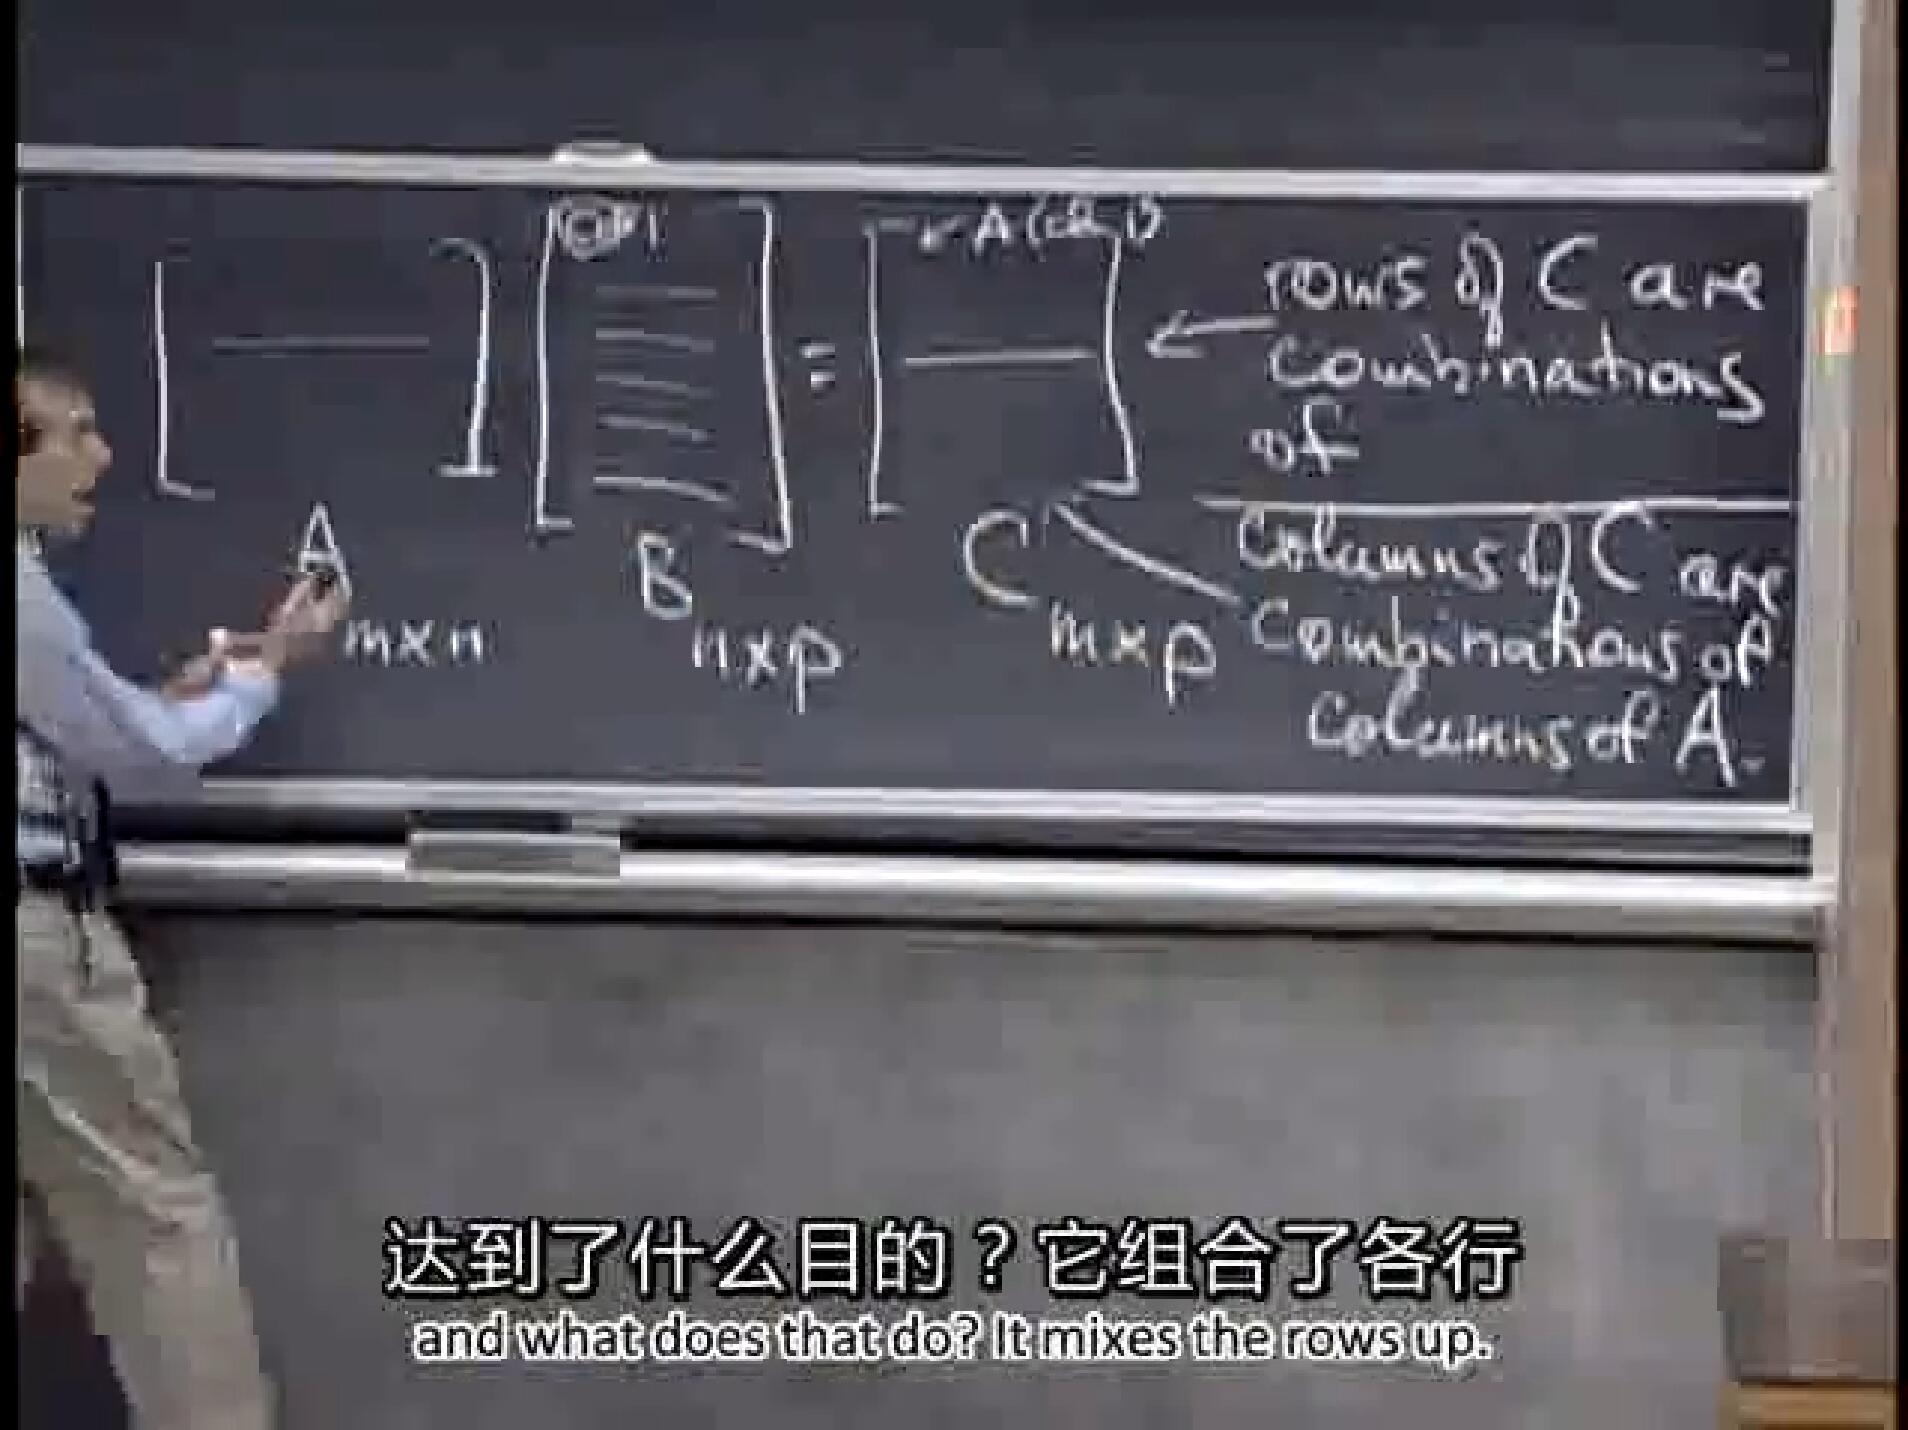 col 1
A(col 1)
=
A
m×n
B
n×p
C
m×p
rows of C are
combinations
of
Columns of C are
Combinations of
Columns of A.
达到了什么目的？它组合了各行
and what does that do? It mixes the rows up.